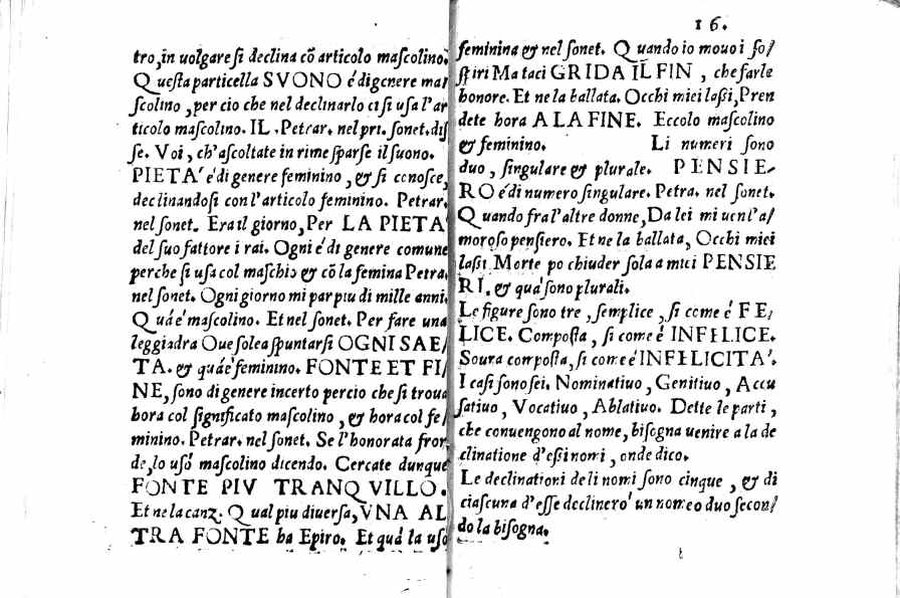 tro, in uolgare si declina cõ articolo mascolino.
Questa particella SVONO é di genere ma/
scolino, per cio che nel declinarlo ci si usa l'ar
ticolo mascolino. IL. Petrar. nel pri. sonet. dis
se. Voi, ch'ascoltate in rime sparse il suono.
PIETA' é di genere feminino, & si conosce,
declinandosi con l'articolo feminino. Petrar.
nel sonet. Era il giorno, Per LA PIETA'
del suo fattore i rai. Ogni é di genere comune
perche si usa col maschio & cõ la femina Petra.
nel sonet. Ogni giorno mi par piu di mille anni.
Quá é mascolino. Et nel sonet. Per fare una
leggiadra Oue solea spuntarsi OGNI SAE/
TA. & quá é feminino. FONTE ET FI/
NE, sono di genere incerto percio che si troua
hora col significato mascolino, & hora col fe/
minino. Petrar. nel sonet. Se l'honorata fron
de, lo usó mascolino dicendo. Cercate dunque
FONTE PIV TRANQVILLO.
Et ne la canz. Qual piu diuersa, VNA AL
TRA FONTE ha Epiro. Et quá la usó
16.
feminina & nel sonet. Quando io mouo i so/
spiri Ma taci GRIDA IL FIN, che farle
honore. Et ne la ballata. Occhi miei lassi, Pren
dete hora A LA FINE. Eccolo mascolino
& feminino. Li numeri sono
duo, singulare & plurale. PENSIE/
RO é di numero singulare. Petra. nel sonet.
Quando fra l'altre donne, Da lei mi uent'a/
moroso pensiero. Et ne la ballata, Occhi miei
lassi Morte po chiuder sola a miei PENSIE
RI. & quá sono plurali.
Le figure sono tre, semplice, si come é FE/
LICE. Composta, si come é INFELICE.
Soura composta, si come é INFELICITA'.
I casi sono sei. Nominatiuo, Genitiuo, Accu
satiuo, Vocatiuo, Ablatiuo. Dette le parti,
che conuengono al nome, bisogna uenire a la de
clinatione d'essi nomi, onde dico.
Le declinationi de li nomi sono cinque, & di
ciascuna d'esse declineró un nome o duo secon/
do la bisogna.